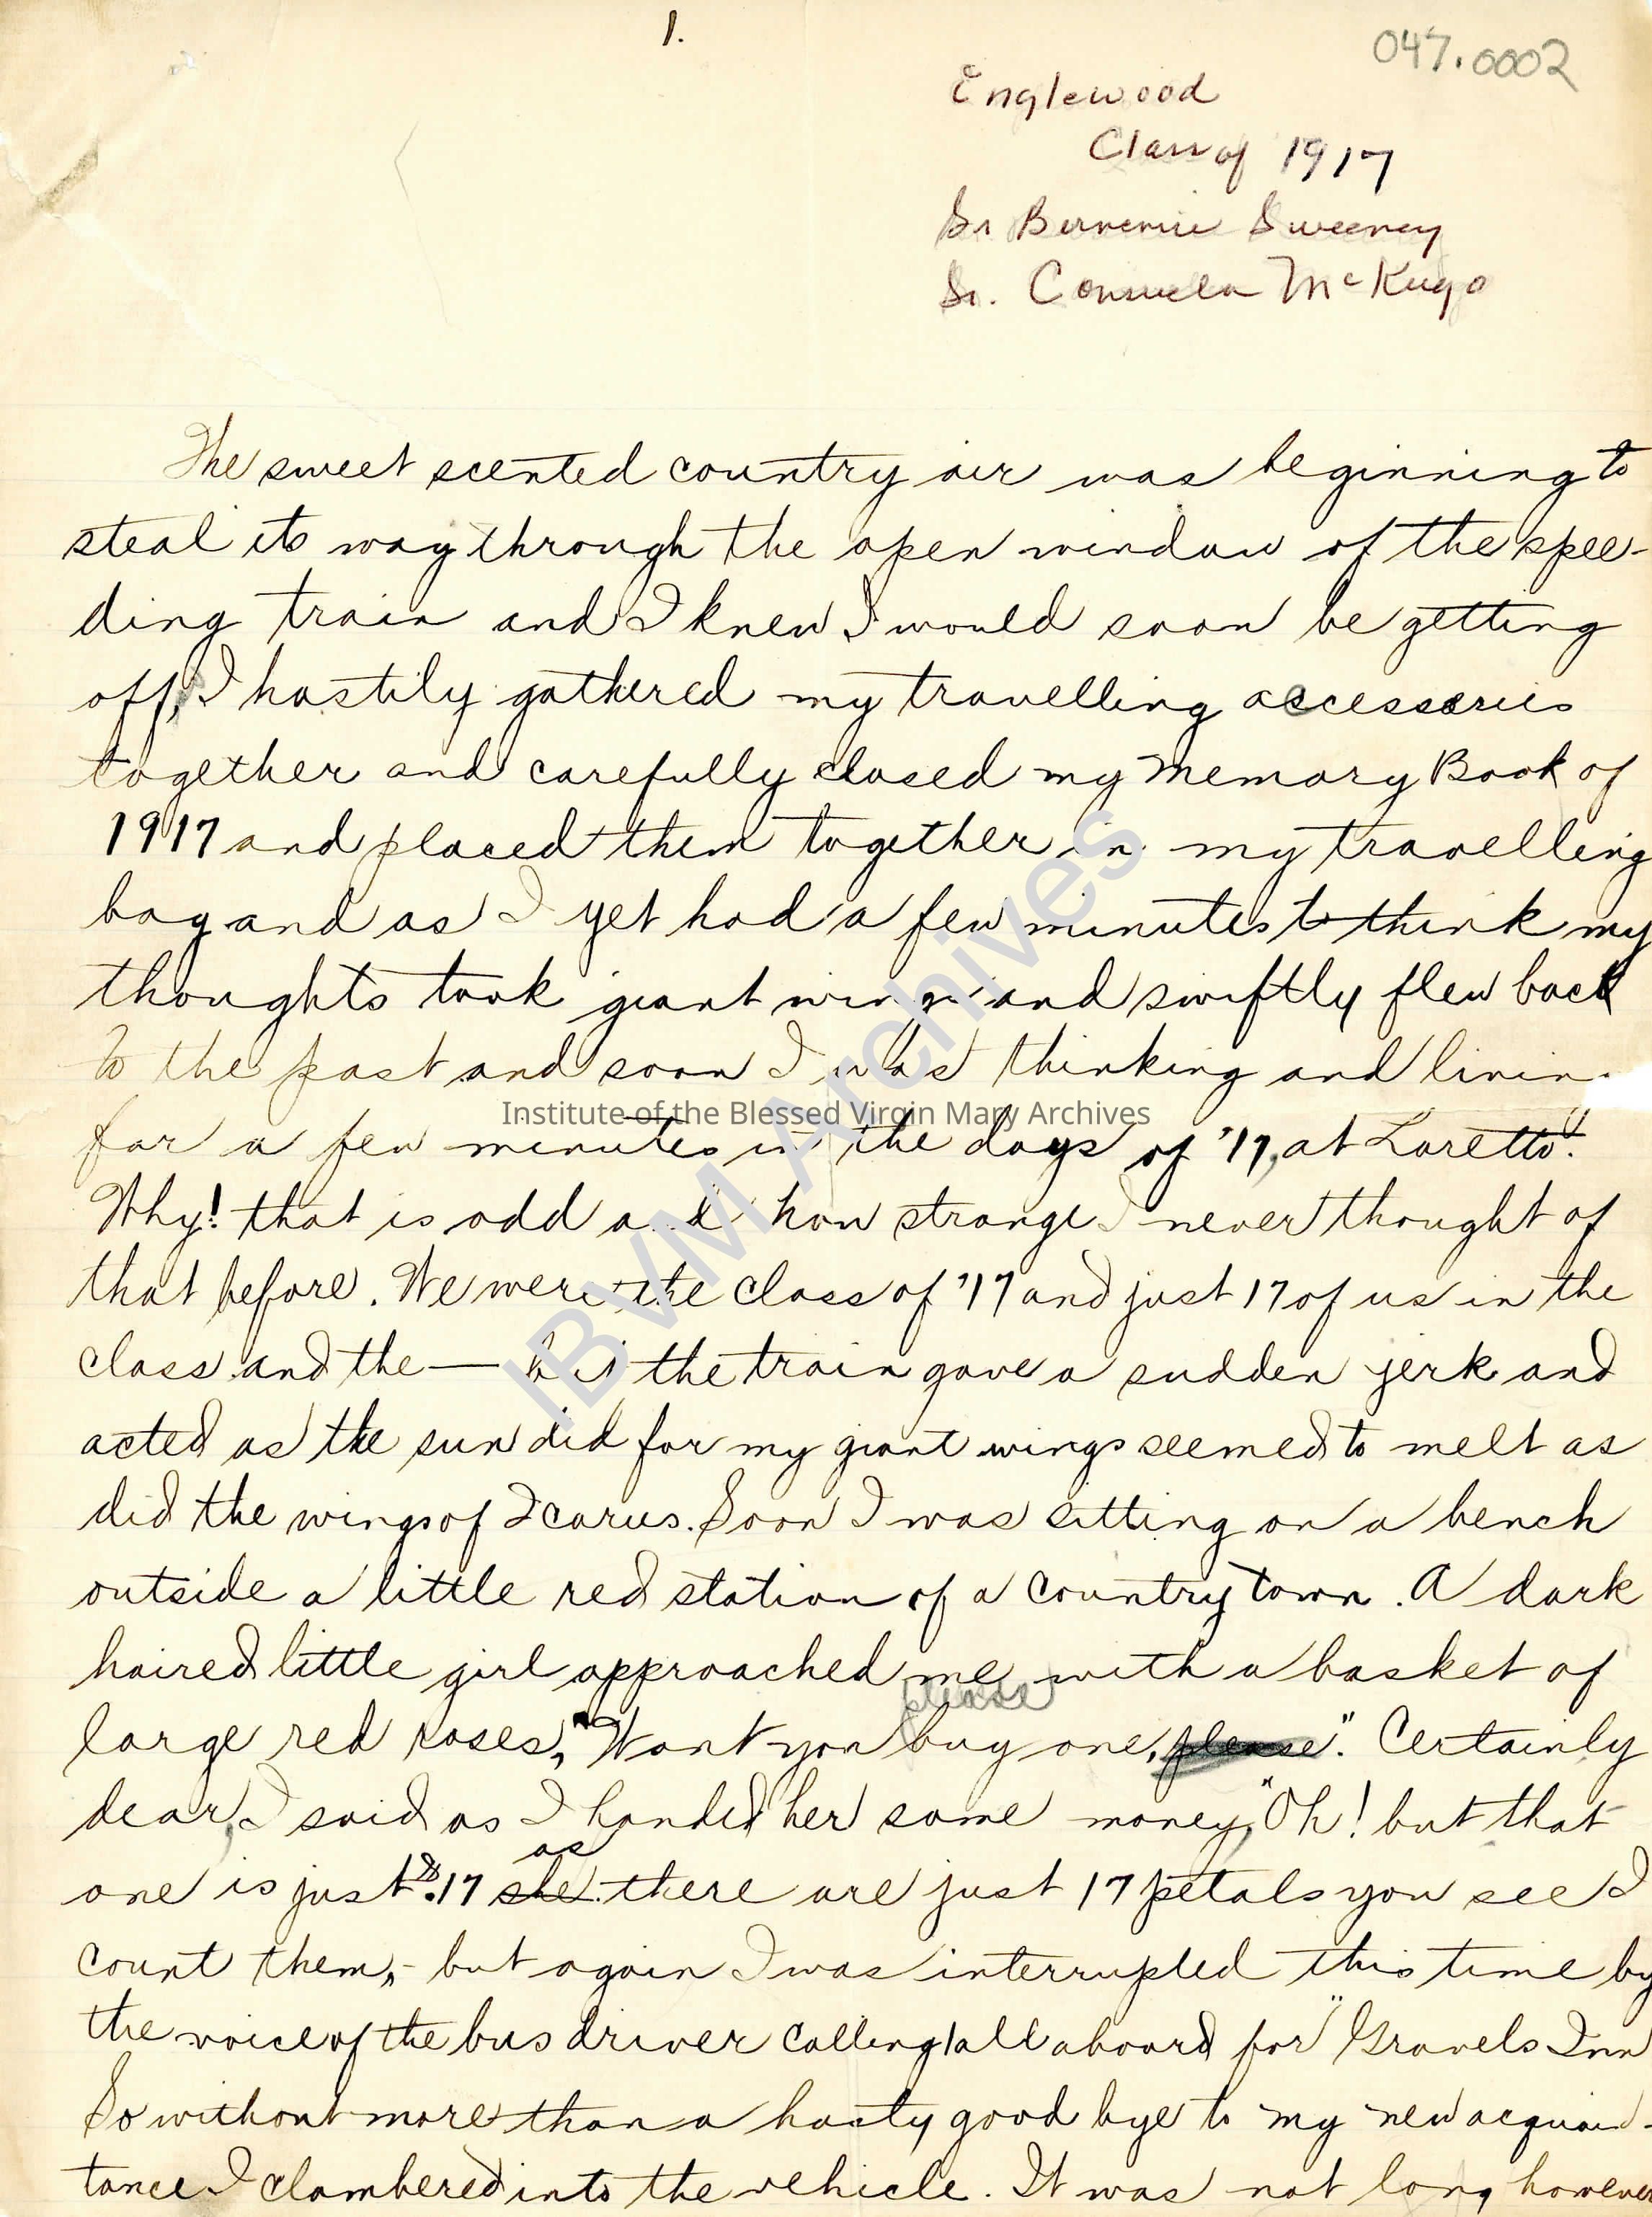 1.
047.0002
Englewood
Class of 1917
Sr Sweeney
Sr. Consuela McKugo
The sweet scented country air was beginning to
steal its way through the open window of the spee-
ding train and I knew I would soon be getting
off, I hastily gathered my travelling accessories
together and carefully closed my Memory Book of
1917 and placed them together in my travelling
bag and as I yet had a few minutes to think my
thoughts took giant wings and swiftly flew back
to the past and soon I was thinking and livin
Institute of the Blessed Virgin Mary Archives
for a few minutes in the days of '17, at Loretto".
Why! that is odd and how strange I never thought of
that before. We were the class of '17 and just 17 of us in the
class and the — but the train gave a sudden jerk and
acted as the sun did for my giant wings seemed to melt as
did the wings of Icarus. Soon I was sitting on a bench
outside a little red station of a country town. A dark
haired little girl approached me with a basket of
please
large red roses, "Wont you buy one, please". Certainly
dear, I said as I handed her some money, "Oh! but that
as
one is just 17 she there are just 17 petals you see I
count them, - but again I was interrupted this time by
the voice of the bus driver calling all aboard for "Gravels Inn
So without more than a hasty good bye to my new acquain-
tance I clambered into the vehicle. It was not long however
IBVM Archives